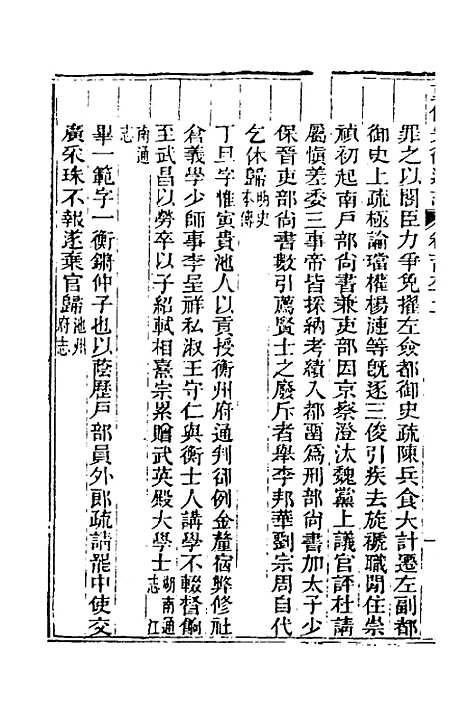 罪之以閣臣力爭免擢左僉都御史疏陳兵食大計遷左副都
御史上疏極論璫權楊漣等旣逐三俊引疾去旋褫職閒住崇
禎初起南戸部尚書兼吏部因京察澄汰魏黨上議官評杜請
屬愼差委三事帝皆採納考績入都畱爲刑部尚書加太子少
保晉吏部尚書數引薦賢士之廢斥者舉李邦華劉宗周自代
乞休歸明史本傳
丁旦字惟寅貴池人以貢授衡州府通判卻例金釐宿弊修社
倉義學少師事李呈祥私淑王守仁與衡士人講學不輟督餉
至武昌以勞卒以子紹軾相熹宗累贈武英殿大學士湖南通志 江
南通志
畢一範字一衡鏘仲子也以蔭歷戸部員外郎疏請罷中使交
廣采珠不報遂棄官歸池州府志